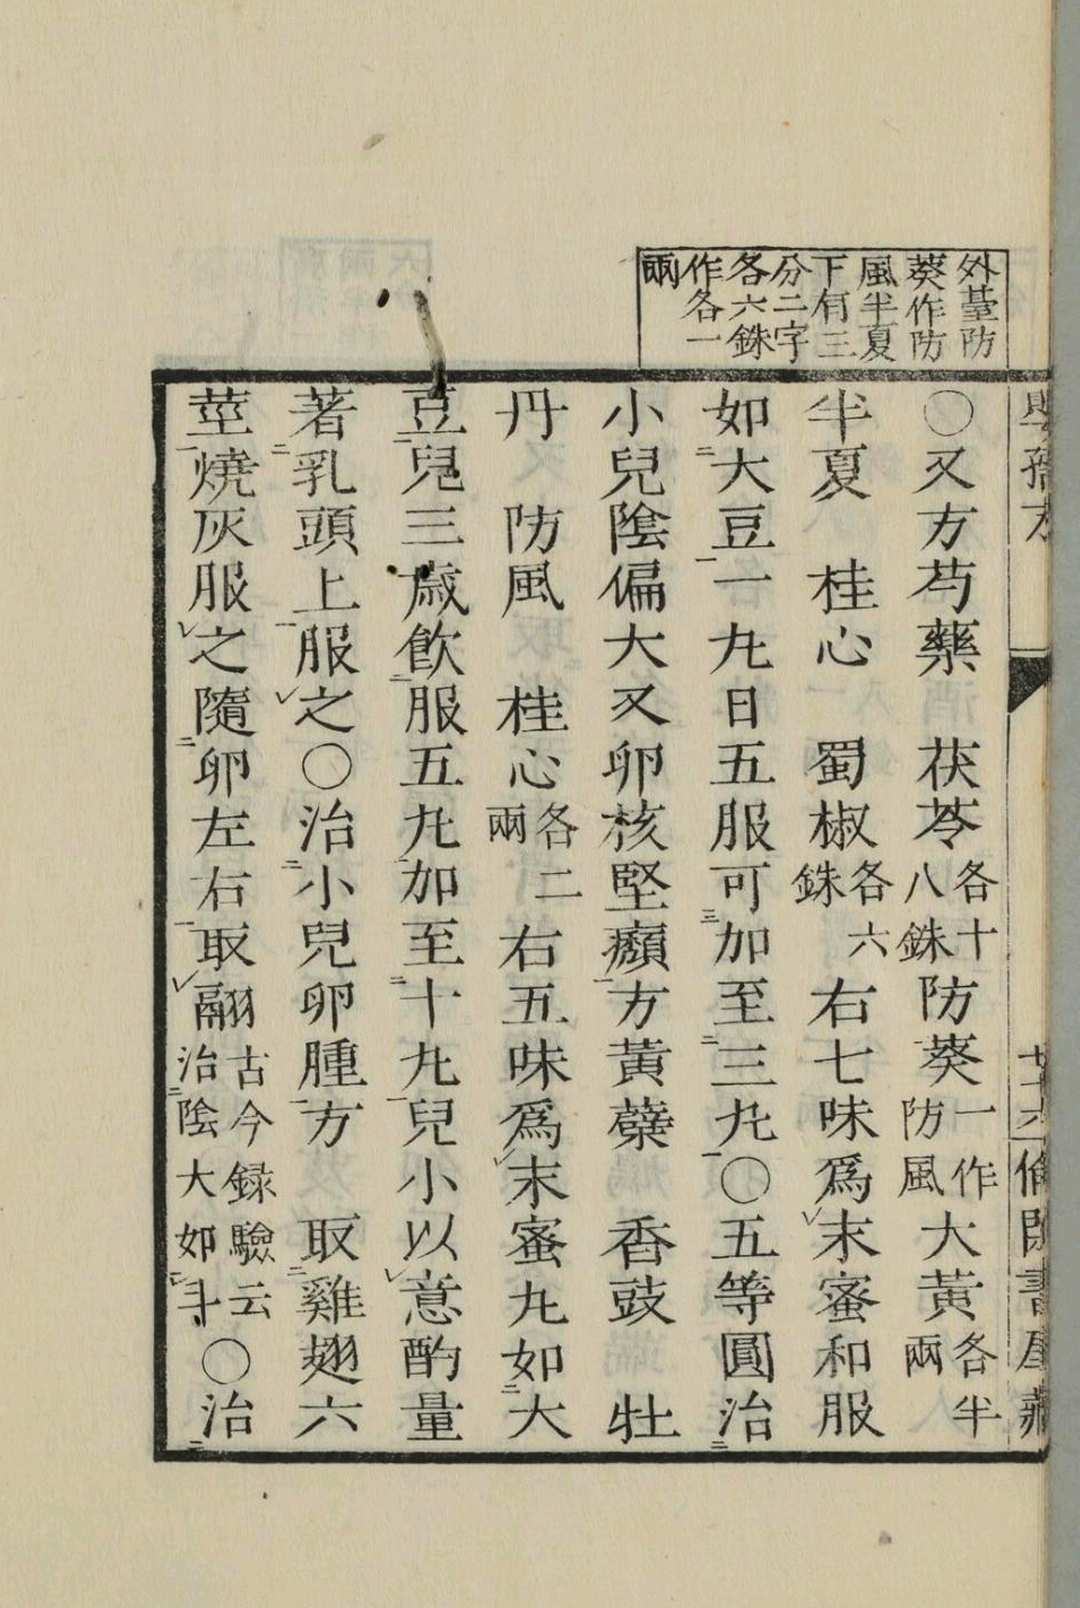 外臺防
葵作防
風半夏
下有三
分二字
各六銖
作各一
兩
〇又方芍藥　茯苓各十八銖防葵一作防風大黃各半兩
半夏　桂心　蜀椒各六銖右七味爲末蜜和服
如大豆一丸日五服可加至三丸〇五等圓治
小兒陰偏大又卵核堅㿗方黃蘗　香豉　牡
丹　防風　桂心各二兩右五味爲末蜜丸如大
豆兒三歲飮服五丸加至十丸兒小以意酌量
著乳頭上服之〇治小兒卵腫方　取雞翅六
莖燒灰服之隨卵左右取翮古今録驗云治陰大如斗〇治